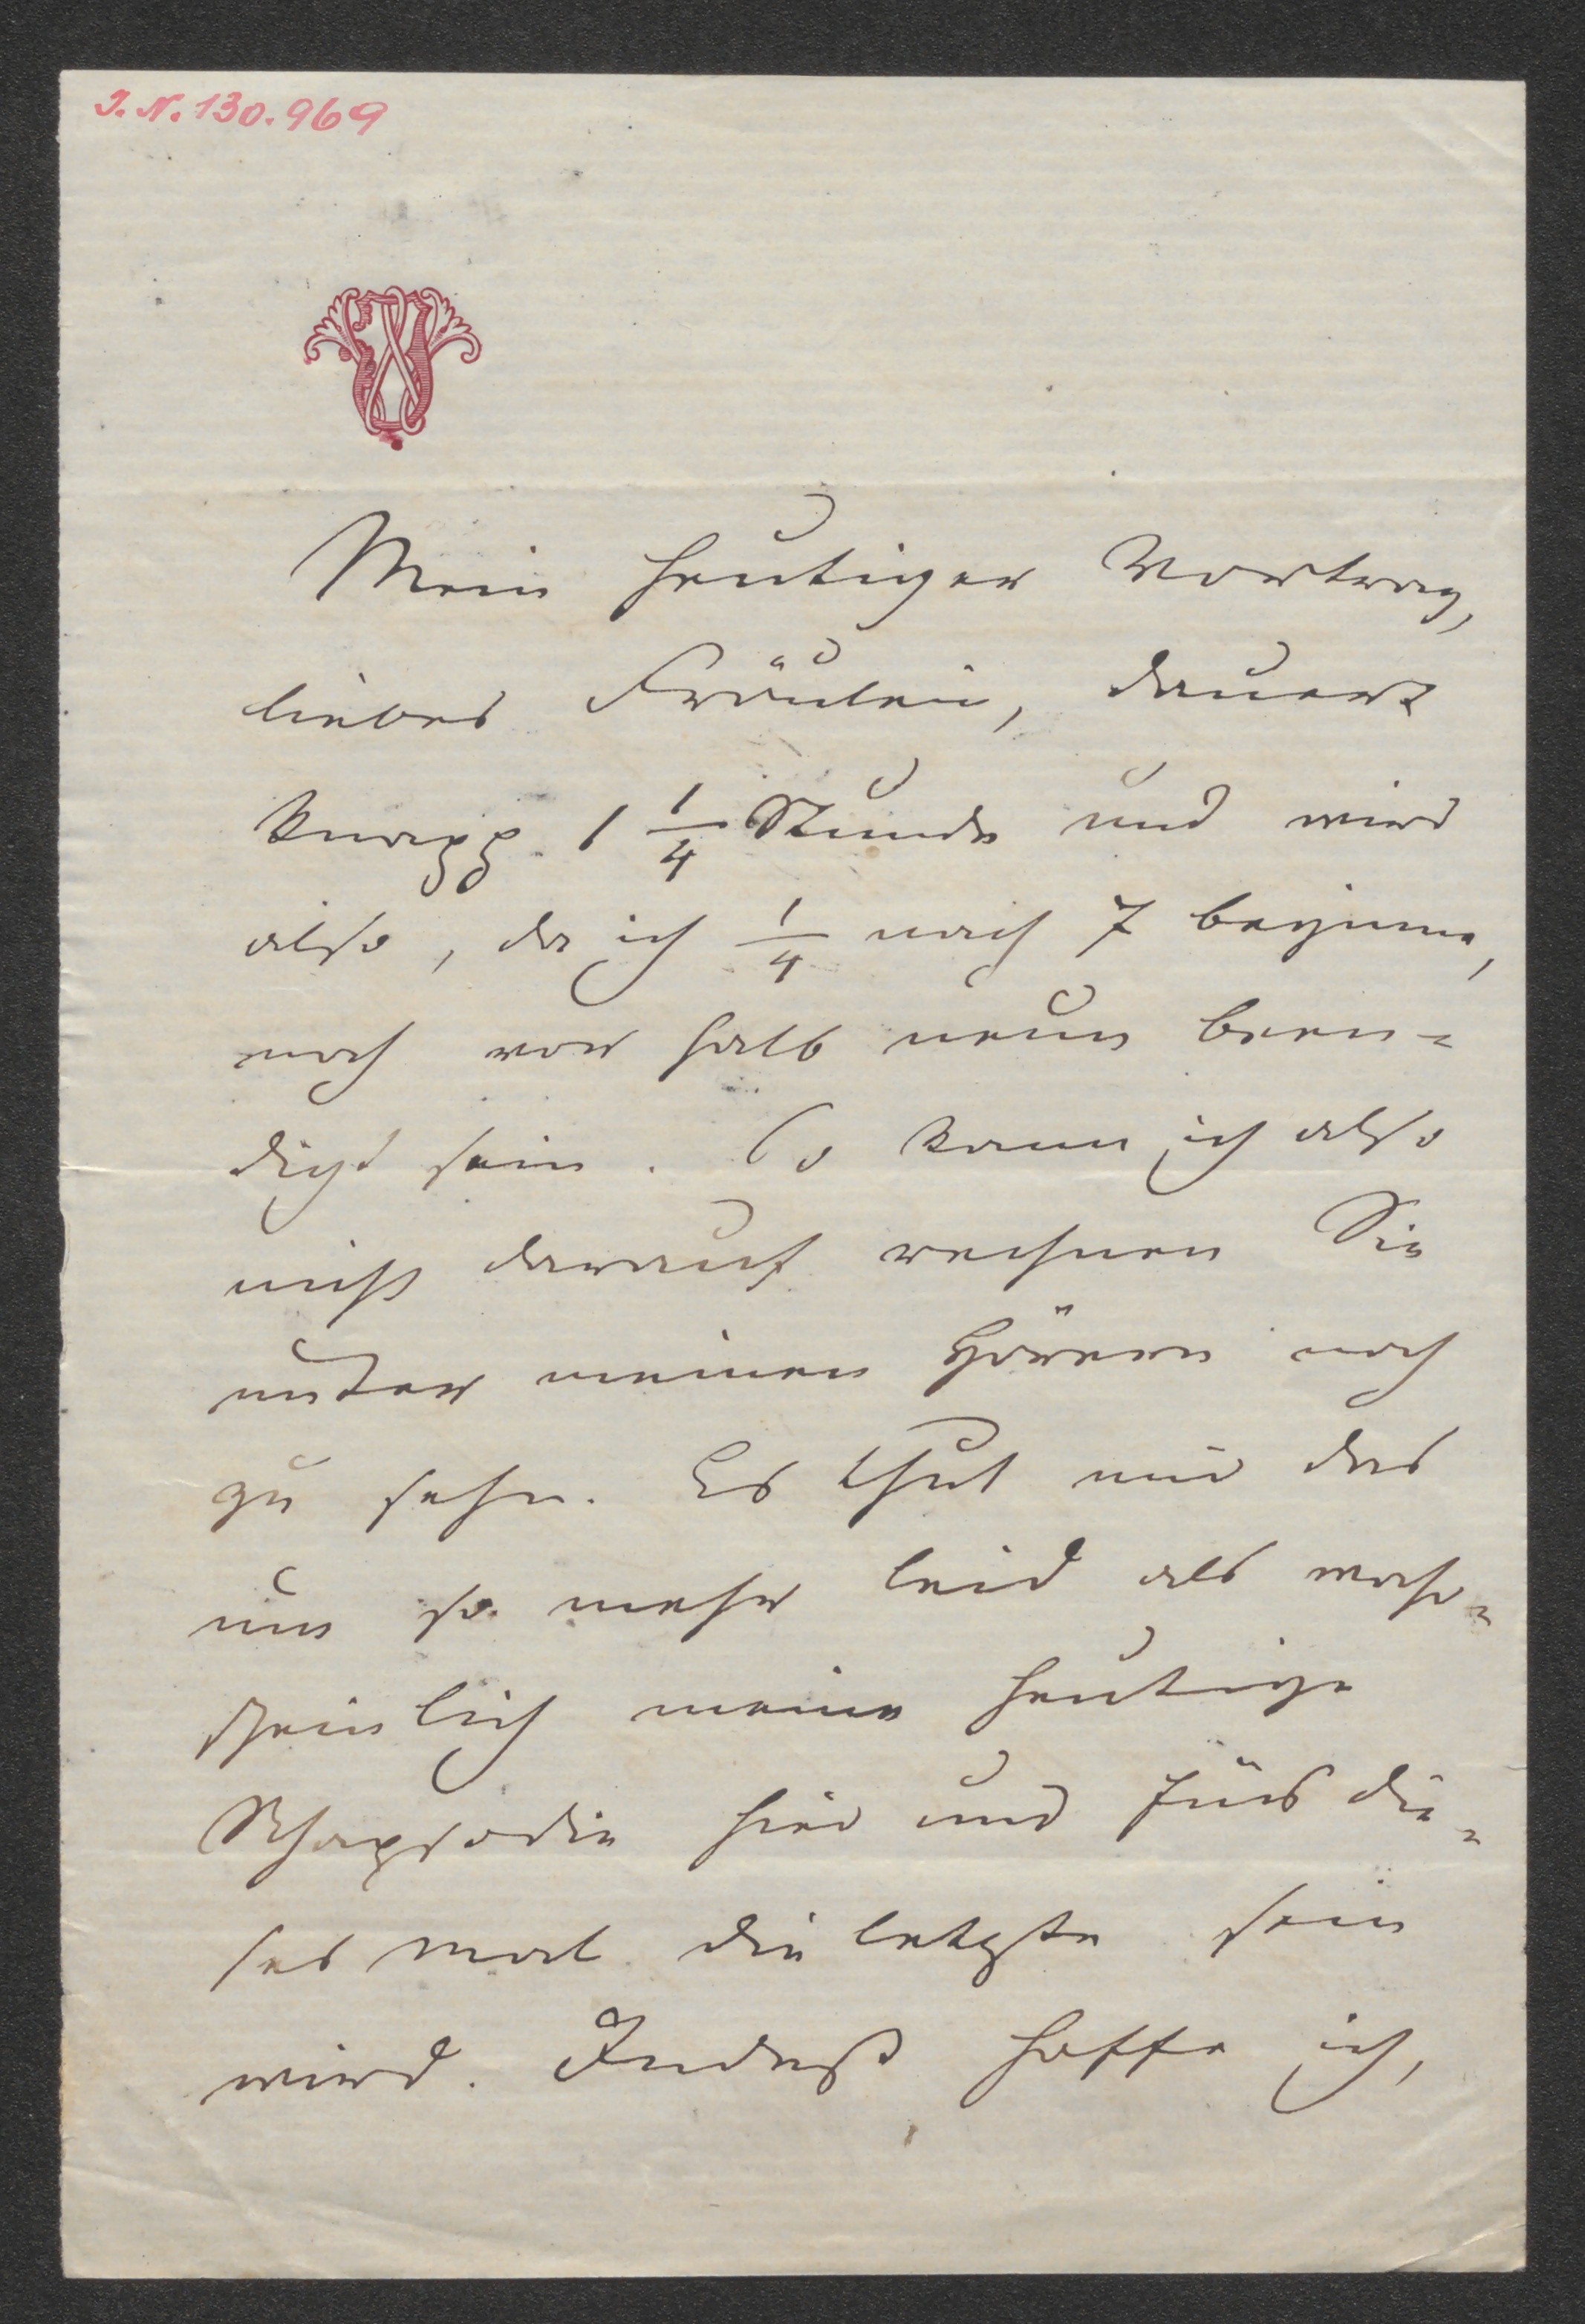 I. N. 130.969
Mein heutiger Vortrag,
liebes Fräulein, dauert
knapp 1 1/4 Stunde und wird
also, da ich 1/4 nach 7 beginne,
noch vor halb neun been=
digt sein. So kann ich also
nicht darauf rechnen Sie
unter meinen Hörern noch
zu sehn. Es thut mir das
um so mehr leid als wahr=
scheinlich meine heutige
Rhapsodie hier und fürs die=
ses mal die letzte sein
wird. Indeß hoffe ich,